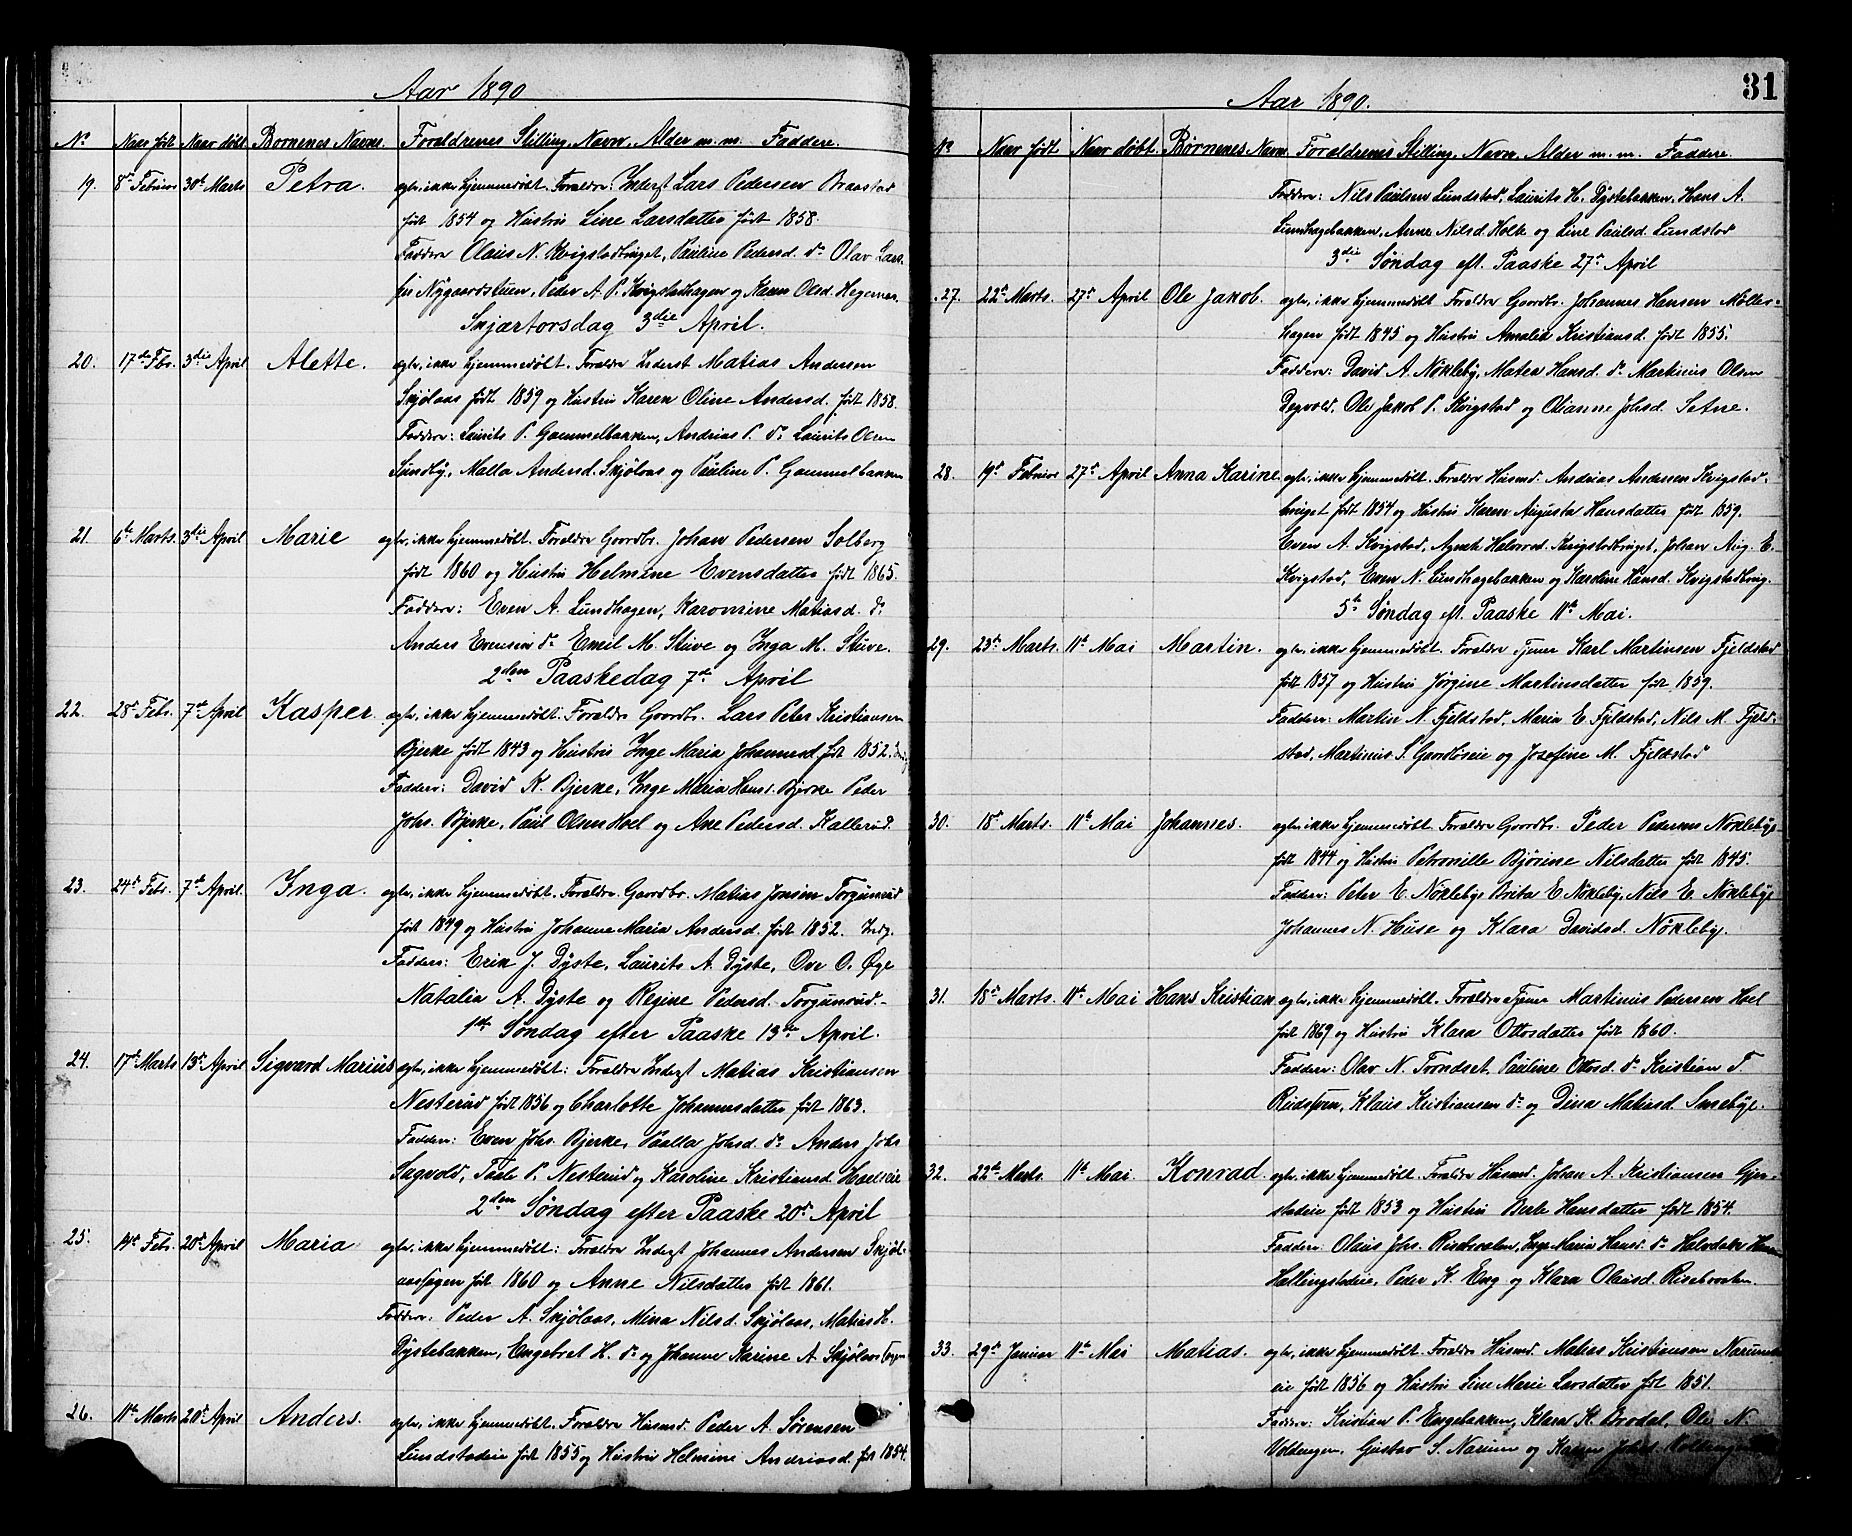 Aar 1890
No Naar født Naar døbt Børnenes Navne Forældrenes Stilling, Navn, Alder m. m. Faddere.
19. 8de Februar 30te Marts Petra. egte, ikke hjemmedøbt. Forældre: Inderst Lars Pedersen Braastad
født 1854 og Hustru Line Larsdatter født 1858.
Faddere Olaus N. Kvigstadbruget, Pauline Pedersd. do Olav Lars-
sen Nygaardstuen, Peder A. P. Kvigstadhagen og Karen Olsd. Hegernes.
Skjærtorsdag 3die April.
20. 17de Fbr. 3die April Alette. egte, ikke hjemmedøbt. Forældre Inderst Matias Andersen
Skjølaas født 1859 og Hustru Karen Oline Andersd. født 1858.
Faddere: Laurits P. Gammelbakken, Andrias P. do Laurits Olsen
Sundby, Malla Andersd. Skjølaas og Pauline P. Gammelbakken
21. 6te Marts. 3die April Marie egte, ikke hjemmedøbt. Forældre Gaardbr. Johan Pedersen Solberg
født 1860 og Hustru Helmine Evensdatter født 1865.
Faddere: Even A. Lundhagen, Karomine Matiasd. do
Anders Evensen do Emil M. Stuve og Inga M. Stuve.
2den Paaskedag 7de April
22. 28de Febr. 7de April Kasper. egte, ikke hjemmedøbt. Forældre Gaardbr. Lars Peter Kristiansen
Bjerke født 1843 og Hustru Inge Maria Johannesd. født 1852.
Faddere: David K. Bjerke, Inge Maria Hansd. Bjerke Peder
Johs. Bjerke, Paul Olsen Hoel og Ane Pedersd. Kallerud.
23. 24de Febr. 7de April. Inga. egte, ikke hjemmedøbt. Forældre Gaardbr. Matias Jonsen Torgunrud
født 1849 og Hustru Johanne Maria Andersd. født 1852. Indg.
Faddere: Erik J. Dyste, Laurits A. Dyste, Ove O. Øye
Natalia A. Dyste og Regine Pedersd. Torgunrud.
1ste Søndag efter Paaske 13de April.
24. 17de Marts 13de April Sigvard Marius egte, ikke hjemmedøbt: Forældre Inderst Matias Kristiansen
Nesterud født 1856 og Charlotte Johannesdatter født 1863.
Faddere: Even Johs. Bjerke, Paalla Johsd. do Anders Johs
Sagvold, Tale P. Nesterud og Karoline Kristiansd. Hoelseie
2den Søndag efter Paaske 20de April
25. 14de Febr. 20de April Maria egte, ikke hjemmedøbt: Forældre Inderst Johannes Andersen Skjøl-
aashagen født 1860 og Anne Nilsdatter født 1861.
Faddere: Peder A. Skjølaas, Mina Nilsd. Skjølaas, Matias L.
Dystebakken, Engebret H. do og Johanne Karine A. Skjølaas
26. 11te Marts 20de April Anders. egte, ikke hjemmedøbt. Forældre Husmd. Peder A. Sørensen
Lundstadeie født 1855 og Hustru Helmine Andriasd. født 1854.
31
Aar 1890.
No Naar født. Naar døbt. Børnenes Navn Forældrenes Stilling, Navn, Alder m. m. Faddere.
Faddere: Nils Paulsen Lundstad, Laurits H. Dystebakken, Hans A.
Lundhagebakken, Anne Nilsd. Holte og Line Paulsd. Lundstad
3die Søndag eft. Paaske 27de April
27. 22de Marts. 27de April Ole Jakob. egte, ikke hjemmedøbt Forældre Gaardbr. Johannes Hansen Møller-
hagen født 1845 og Hustru Amalia Kristiansd. født 1855.
Faddere: David A. Nøkleby, Mater Hansd. do Martinius Olsen
Degvold, Ole Jakob P. Kvigstad og Olianne Johsd. Sætne.
28. 19de Februar 27de April Anna Karine egte, ikke hjemmedøbt. Forældre Husmd. Andrias Andersen Kvigstad-
bruget født 1854 og Hustru Karen Augusta Hansdatter født 1859.
Even A. Kvigstad, Agnethe Halvorsd. Kvigstadbruget, Johan Aug. E.
Kvigstad, Even N. Lundhagebakken og Karoline Hansd. Kvigstadbrug.
5te Søndag eft. Paaske 11te Mai.
29. 23de Marts. 11te Mai Martin. egte, ikke hjemmedøbt. Forældre Tjener Karl Martinsen Fjeldstad
født 1857 og Hustru Jørgine Martinsdatter født 1859.
Faddere: Martin N. Fjeldstad, Maria E. Fjeldstad, Nils M. Fjeld-
stad, Martinus S. Gaardløseie og Josefine M. Fjeldstad
30. 18de Marts. 11te Mai Johannes. egte, ikke hjemmedøbt. Forældre Gaardbr. Peder Pedersen Nøkleby
født 1844 og Hustru Petronille Bjørine Nilsdatter født 1845.
Faddere: Peter E. Nøkleby Brita E Nøkleby, Nils E. Nøkleby
Johannes N. Huse og Klara Davidsd. Nøkleby.
31. 18de Marts. 11te Mai Hans Kristian egte, ikke hjemmedøbt. Forældre Tjener Martinius Pedersen Hoel
født 1869 og Hustru Klara Ottosdatter født 1860.
Faddere: Olav N. Trondset, Pauline Ottosd. do Kristian T
Klaus Kristiansen do og Dina Matiasd. Smeby.
32. 22de Marts. 11te Mai. Konrad egte, ikke hjemmedøbt. Forældre Husmd. Johan A. Kristiansen Gjer-
stadeie født 1853 og Hustru Berte Hansdatter født 1854.
Faddere Olaus Johs. Risebraaten, Inge Maria Hansd. do Halvdan Hansen
Hallingstadeie, Peder K. Eng og Klara Olausd. Risebraaten.
33. 29de Januar 11te Mai Matias. egte, ikke hjemmedøbt. Forældre Husmd. Matias Kristiansen Narum-
eie født 1856 og Hustru Line Marie Larsdatter født 1851.
Faddere: Kristian P. Engebakken, Klara K. Brodal, Ole N.
Voldengen, Gustav S. Narum og Karen Johsd.